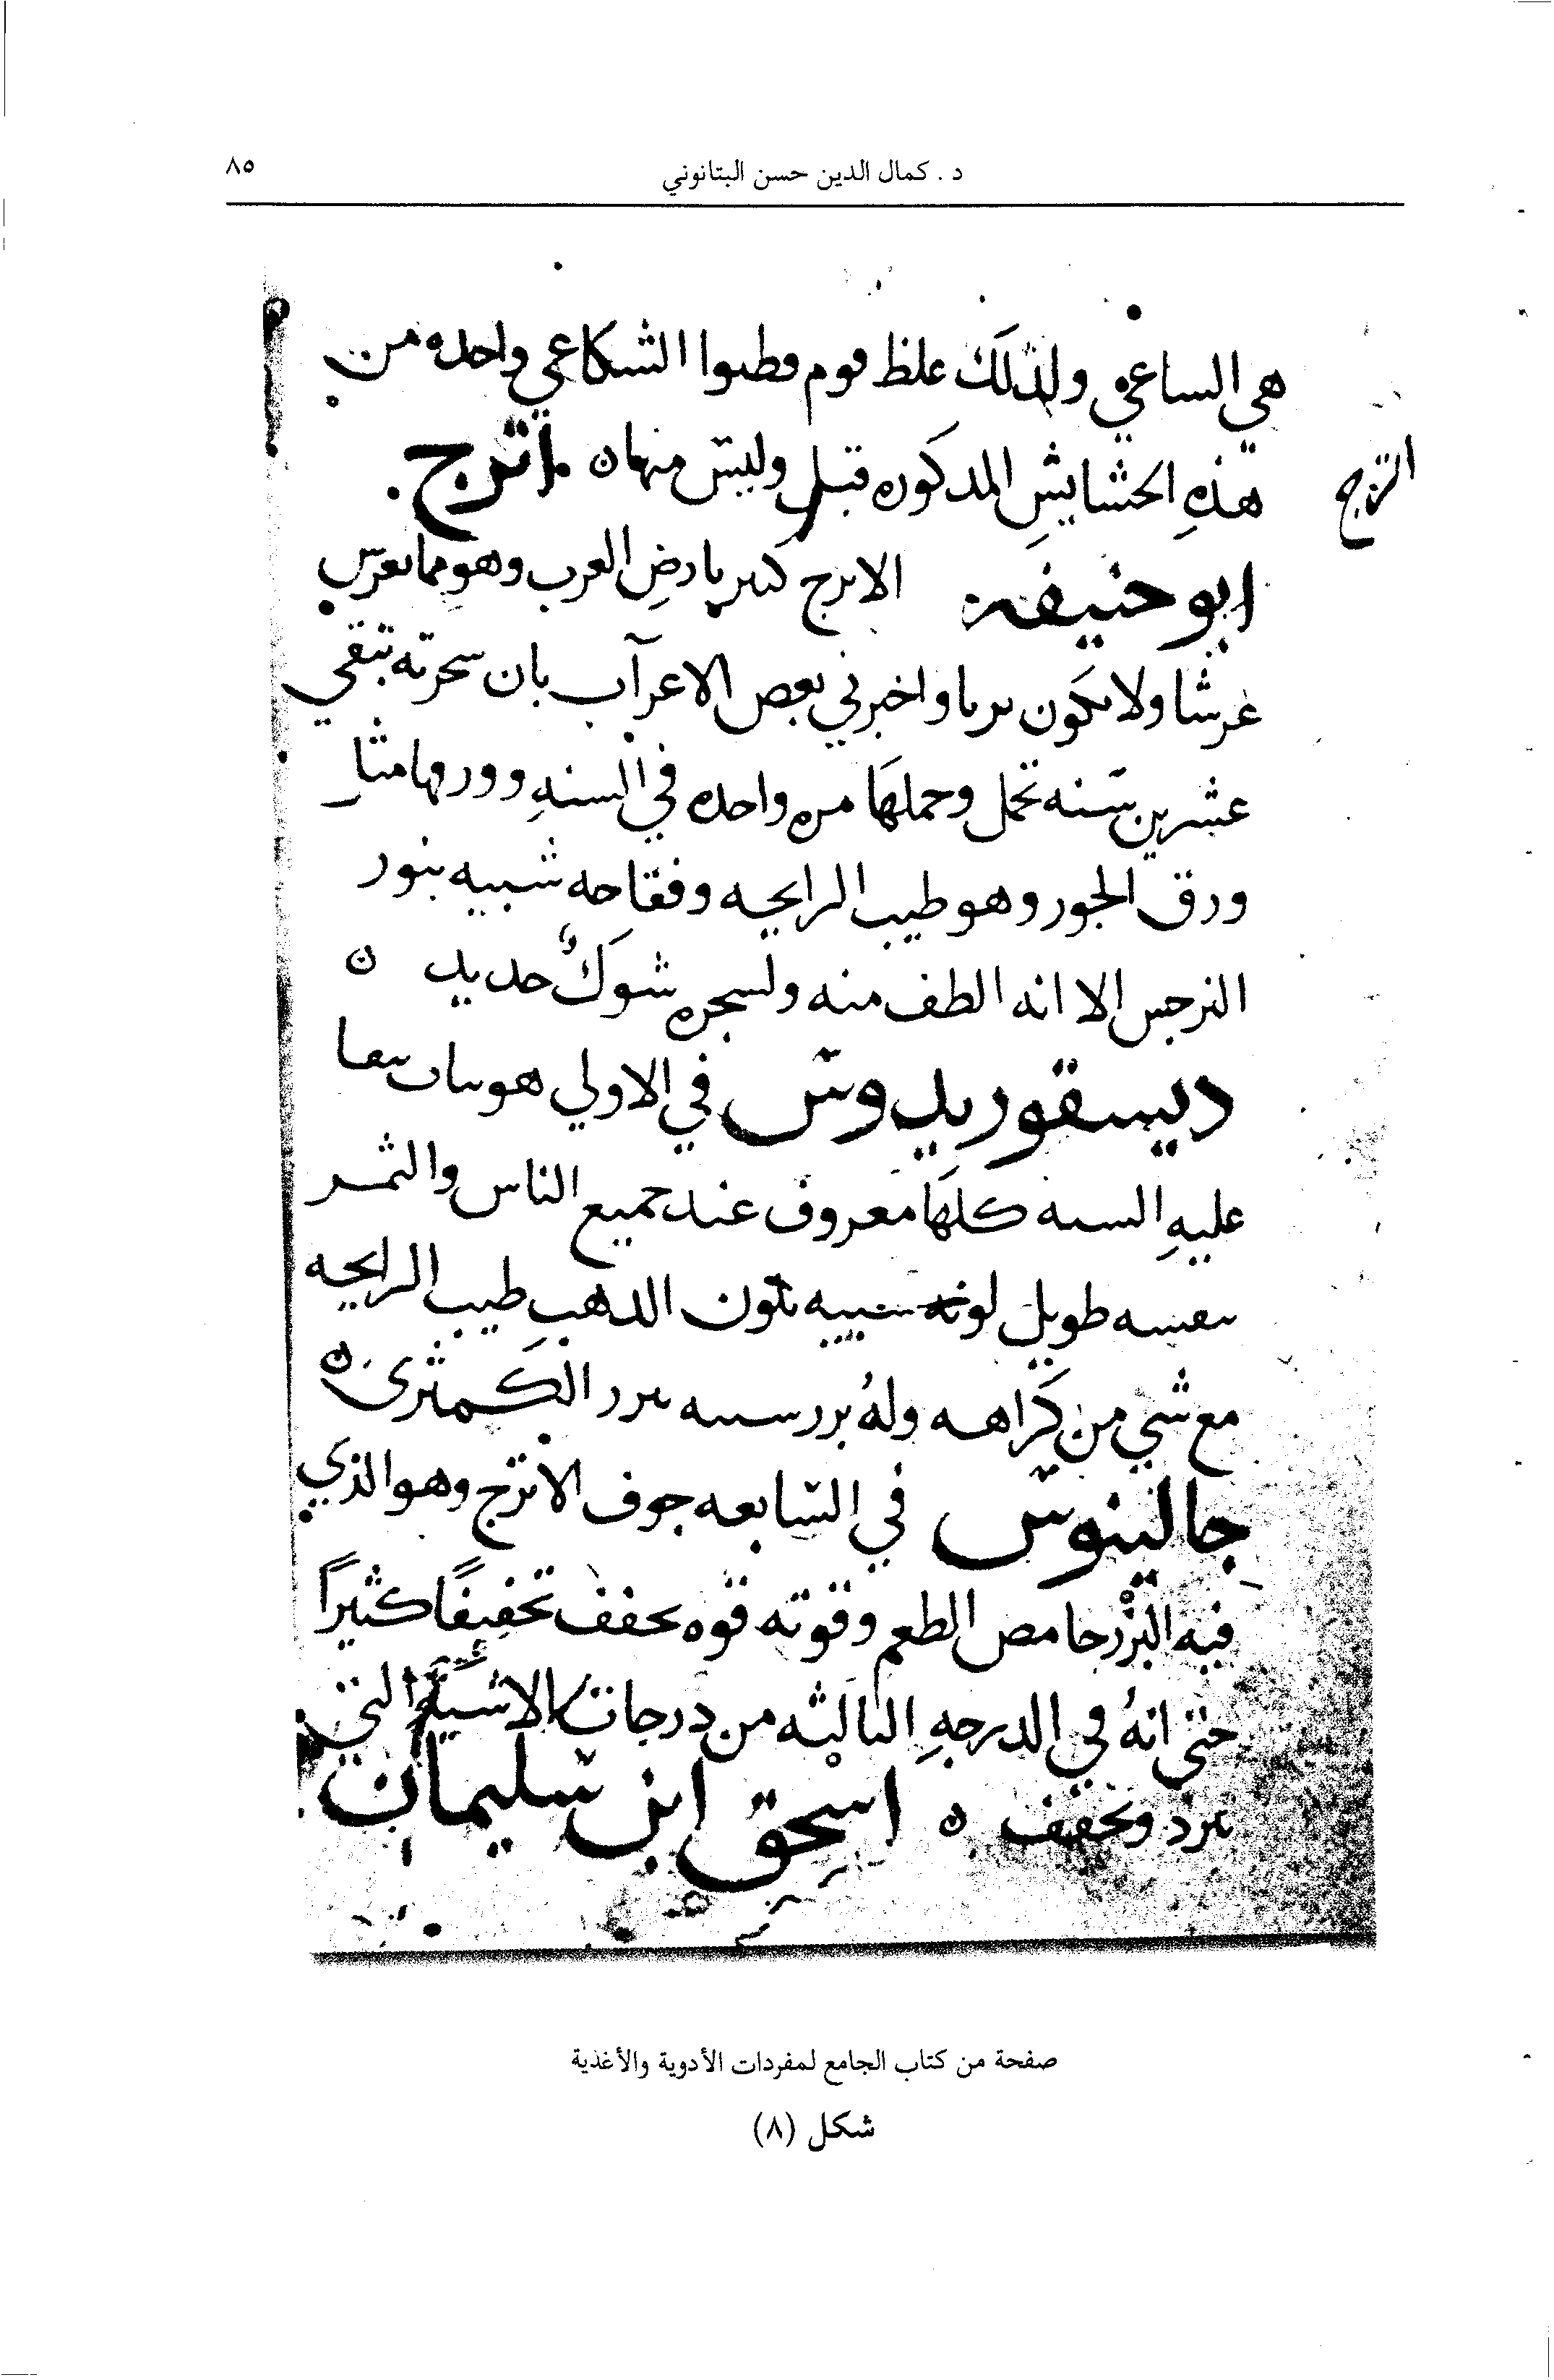 د . كمال الدين حسن البتانوني
٨٥
هي الساعي ولذلك غلط قوم فظنوا الشكاعي واحده من
هذهِ الحشايشِ المذكوره قبل وليس منها ن اترج
الترج
ابو حنيفه الاترج كثير بارضِ العرب وهو مما يغرس
غرسًا ولا يكون بريا واخبرني بعض الاعرآب بان شجرته تبقي
عشرين سنه تحمل وحملها مره واحده في السنهِ وورقها مثل
ورق الجوز وهو طيب الرايحه وفقاحه شبيه بنور
النرجس الا انه الطف منه ولشجره شوكٌ حديد ن
ديسقوريدوس في الاولي هو نبات يبقا
عليهِ السنه كلها معروف عند جميع الناس والثمر
بنفسه طويل لونه شبيه بلون الذهب طيب الرايحه
مع شي من كراهه ولهُ بزر شبيه ببزر الكمثرى ن
جالينوس في السابعه جوف الاترج وهو الذي
فيه البزْر حامض الطعم وقوته قوه تجفف تجفيفًا كثيرًا
حتي انهُ في الدرجهِ الثالثه من درجات الاشيآء التي
تبرد وتجفف ن اسحق ابن سليمان
صفحة من كتاب الجامع لمفردات الأدوية والأغذية
شكل (٨)